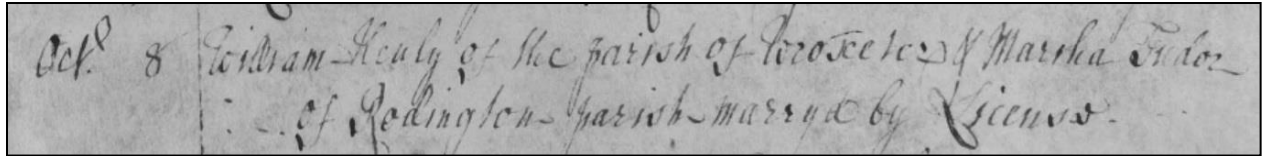 Oct.r 8 William Henly of the parish of Wroxeter & Martha Tudor
of Rodington parish marryd by License.